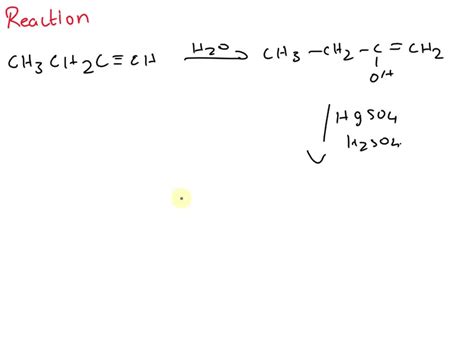 Reaction
CH3CH2C≡CH H2O CH3-CH2-C=CH2
OH
HgSO4
H2SO4